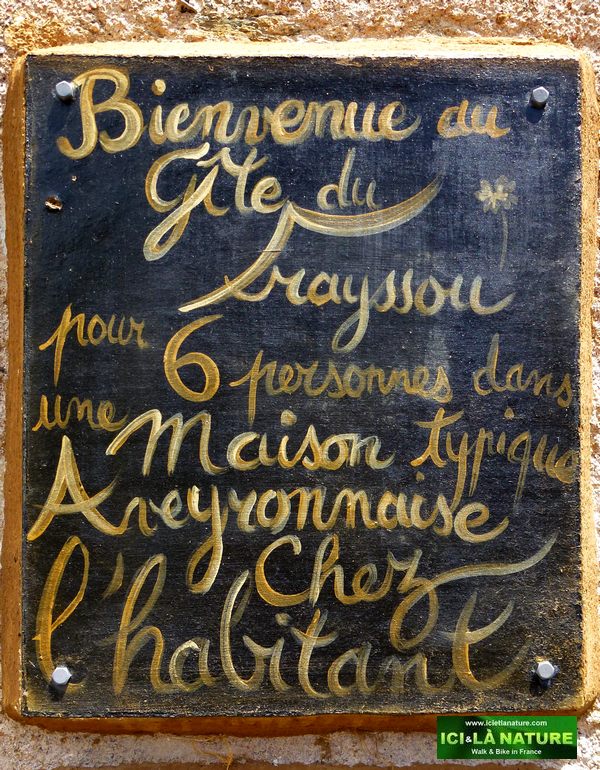 Bienvenue du
Gîte du
Frayssou
pour 6 personnes dans
une Maison typique
Aveyronnaise
Chez
l'habitant
www.icietlanature.com
ICI & LÀ NATURE
Walk & Bike in France